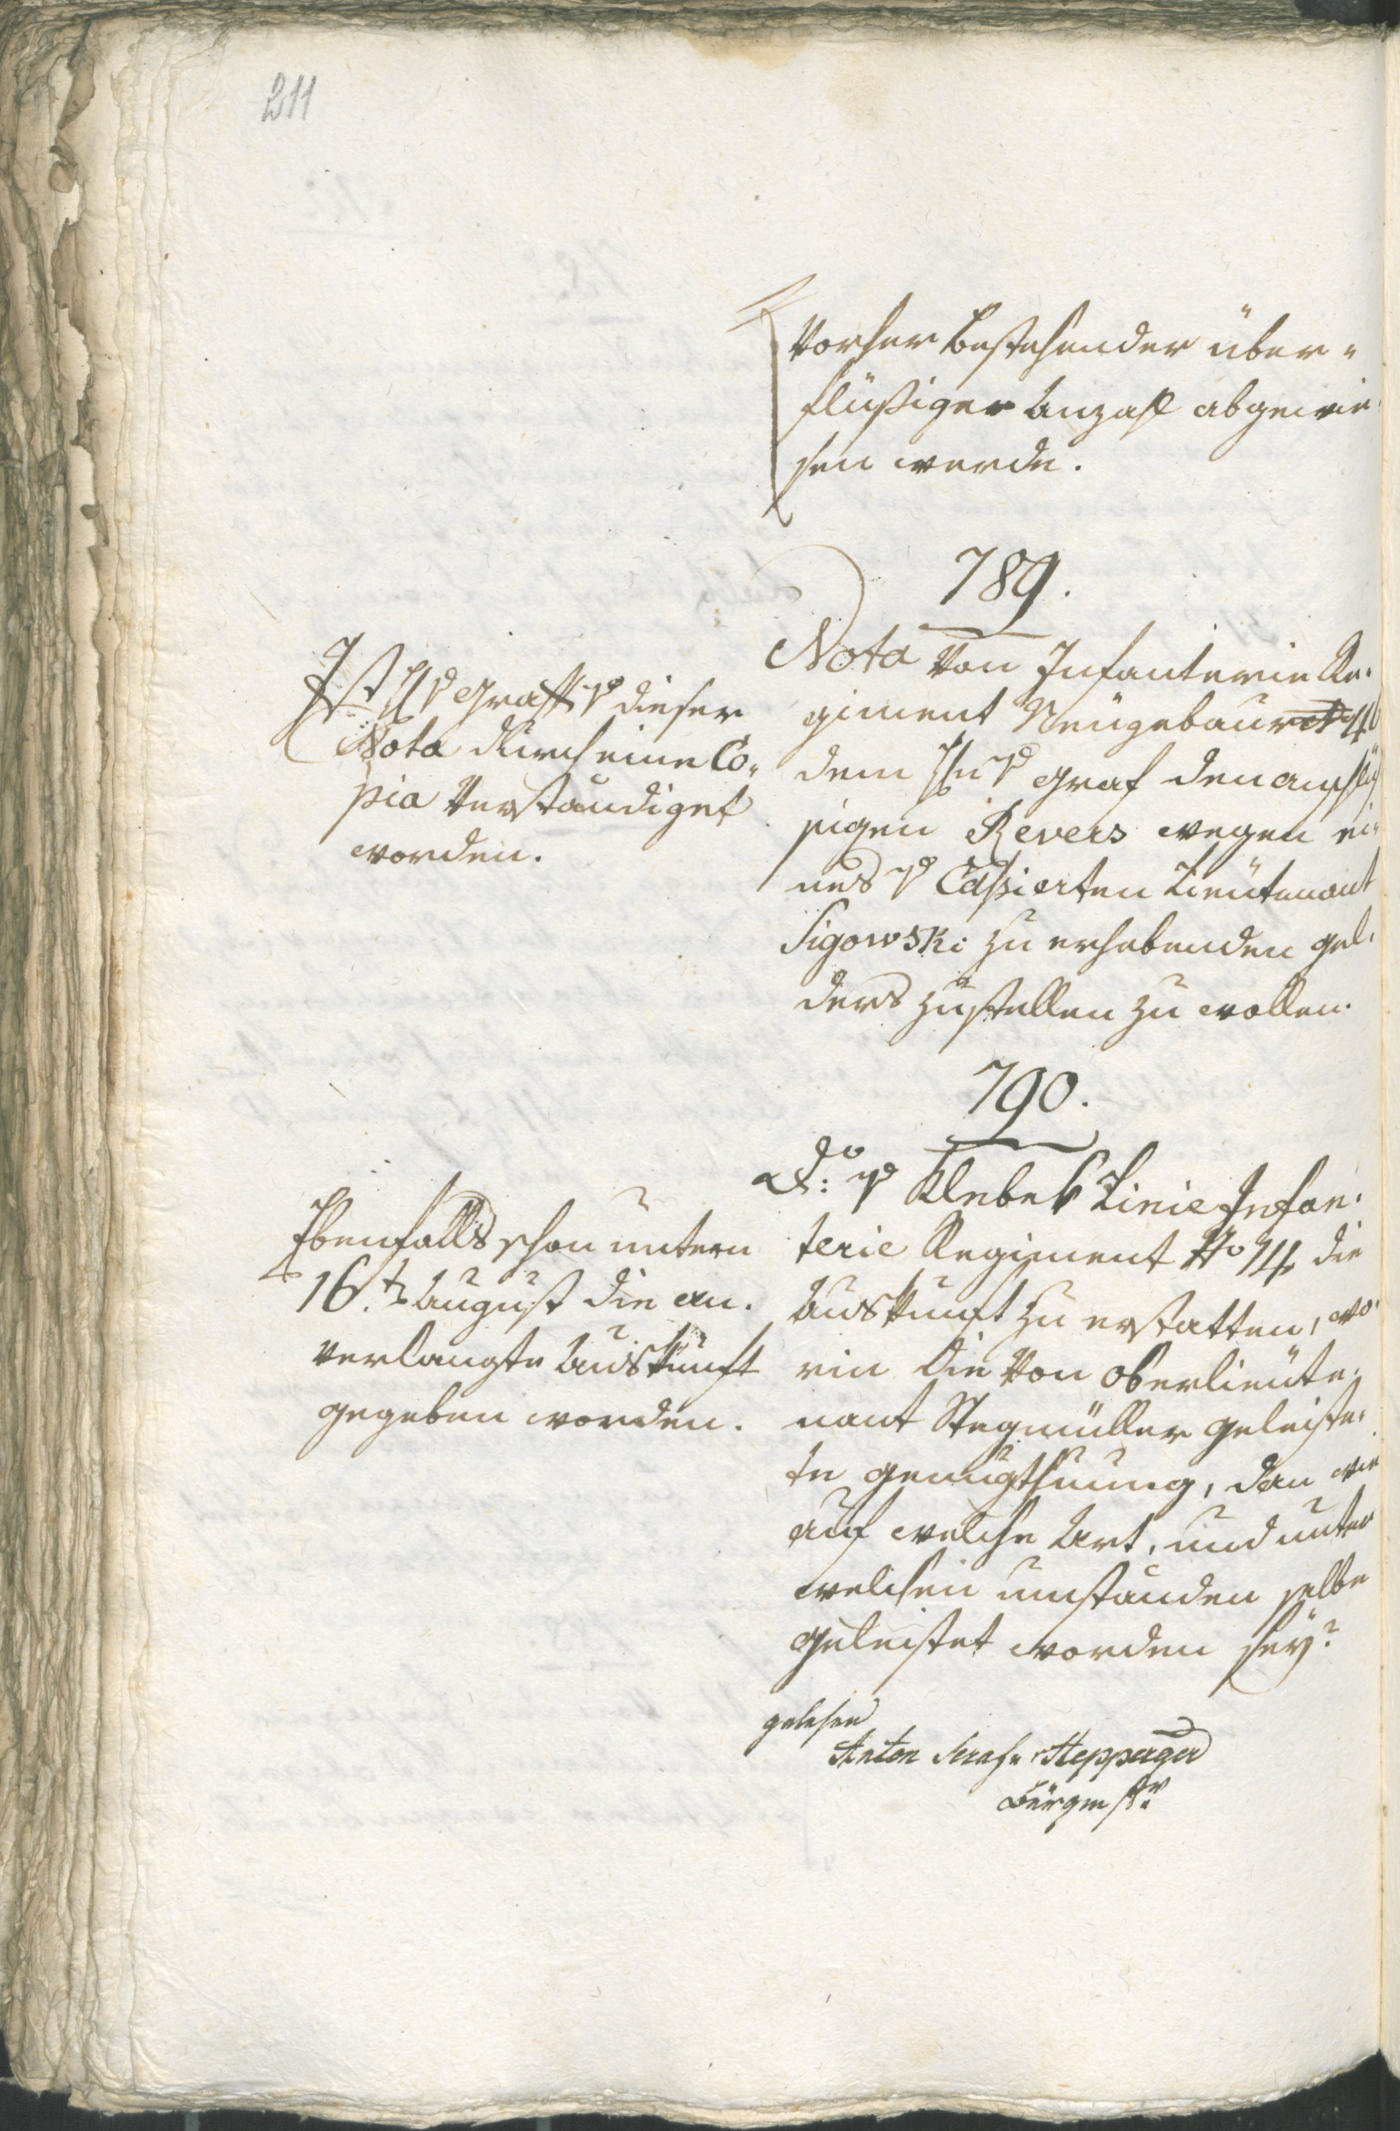 211
vorher bestehender über-
flüßiger Anzahl abgewie-
sen werde.
789.
Nota von Infanterie Re-
giment Neügebaur No 46
dem Hn v Graf den anschlü-
ßigen Revers wegen ei-
nes v Caßierten Lieütenant
Sigowski zu erhebenden Gel-
ders zustellen zu wollen.
Ist H v Graff v dieser
Nota durch eine Co-
pia verständiget
worden.
790.
do: v Klebek Linie Infan-
terie Regiment No 14 die
Auskunft zu erstatten, wo-
rin die von Oberlieüte-
nant Stegmüller geleiste-
te Genugthuung, dan wie
auf welche Art, und unter
welchen umständen selbe
geleistet worden seÿ?
Ebenfalls schon untern
16.t August die an-
verlangte Auskunft
gegeben worden.
gelesen
Anton Stepperger
Bürgmstr